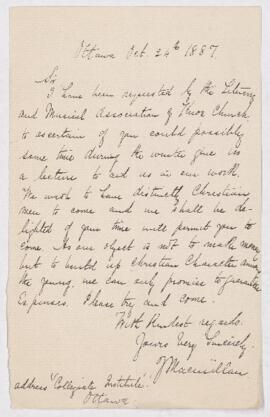 Ottawa Oct. 24th 1887.
Sir
I have been requested by the Literary
and Musical Association of Knox Church
to ascertain if you could possibly
some time during the winter give us
a lecture to aid us in our work.
We wish to have distinctly Christian
men to come and we shall be de-
lighted if your time will permit you to
come. As our object is not to make money
but to build up Christian Character among
the young, we can only promise to guarantee
Expenses. Please try and come.
With Kindest regards.
Yours Very Sincerely
J Macmillan
address "Collegiate Institute".
Ottawa.